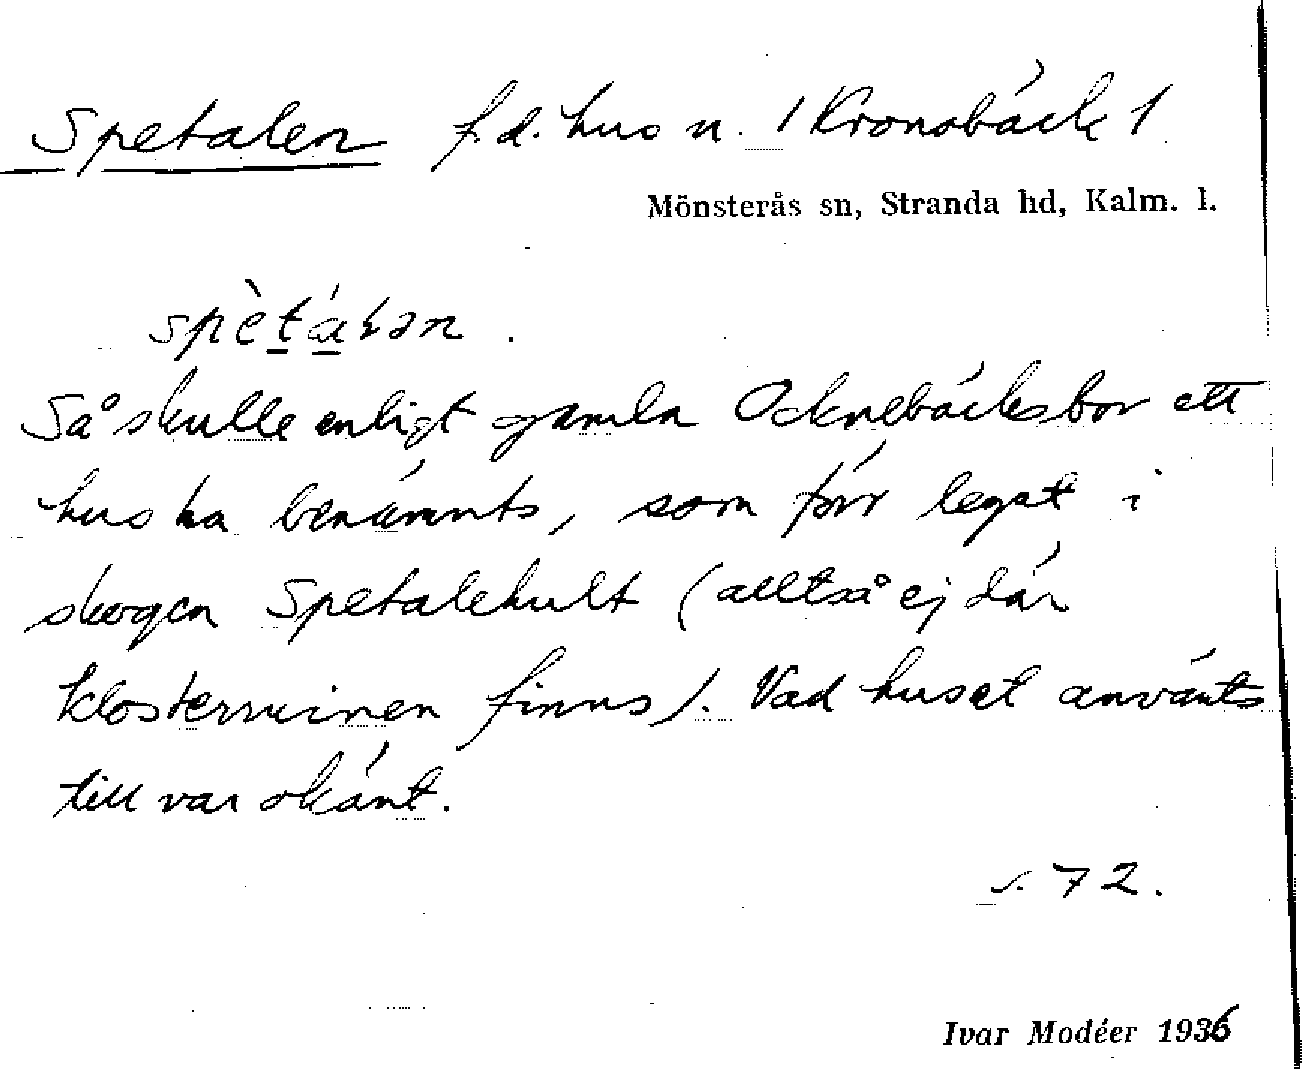 Spetalen f.d. hus u. /Kronobäck 1
Mönsterås sn, Stranda hd, Kalm. l.
spètálən.
Så skulle enligt gamla Ocknebäcksbor ett
hus ha benämnts, som förr legat i
skogen Spetalehult (alltså ej där
klosterruinen finns). Vad huset använts
till var okänt.
s. 72.
Ivar Modéer 1936